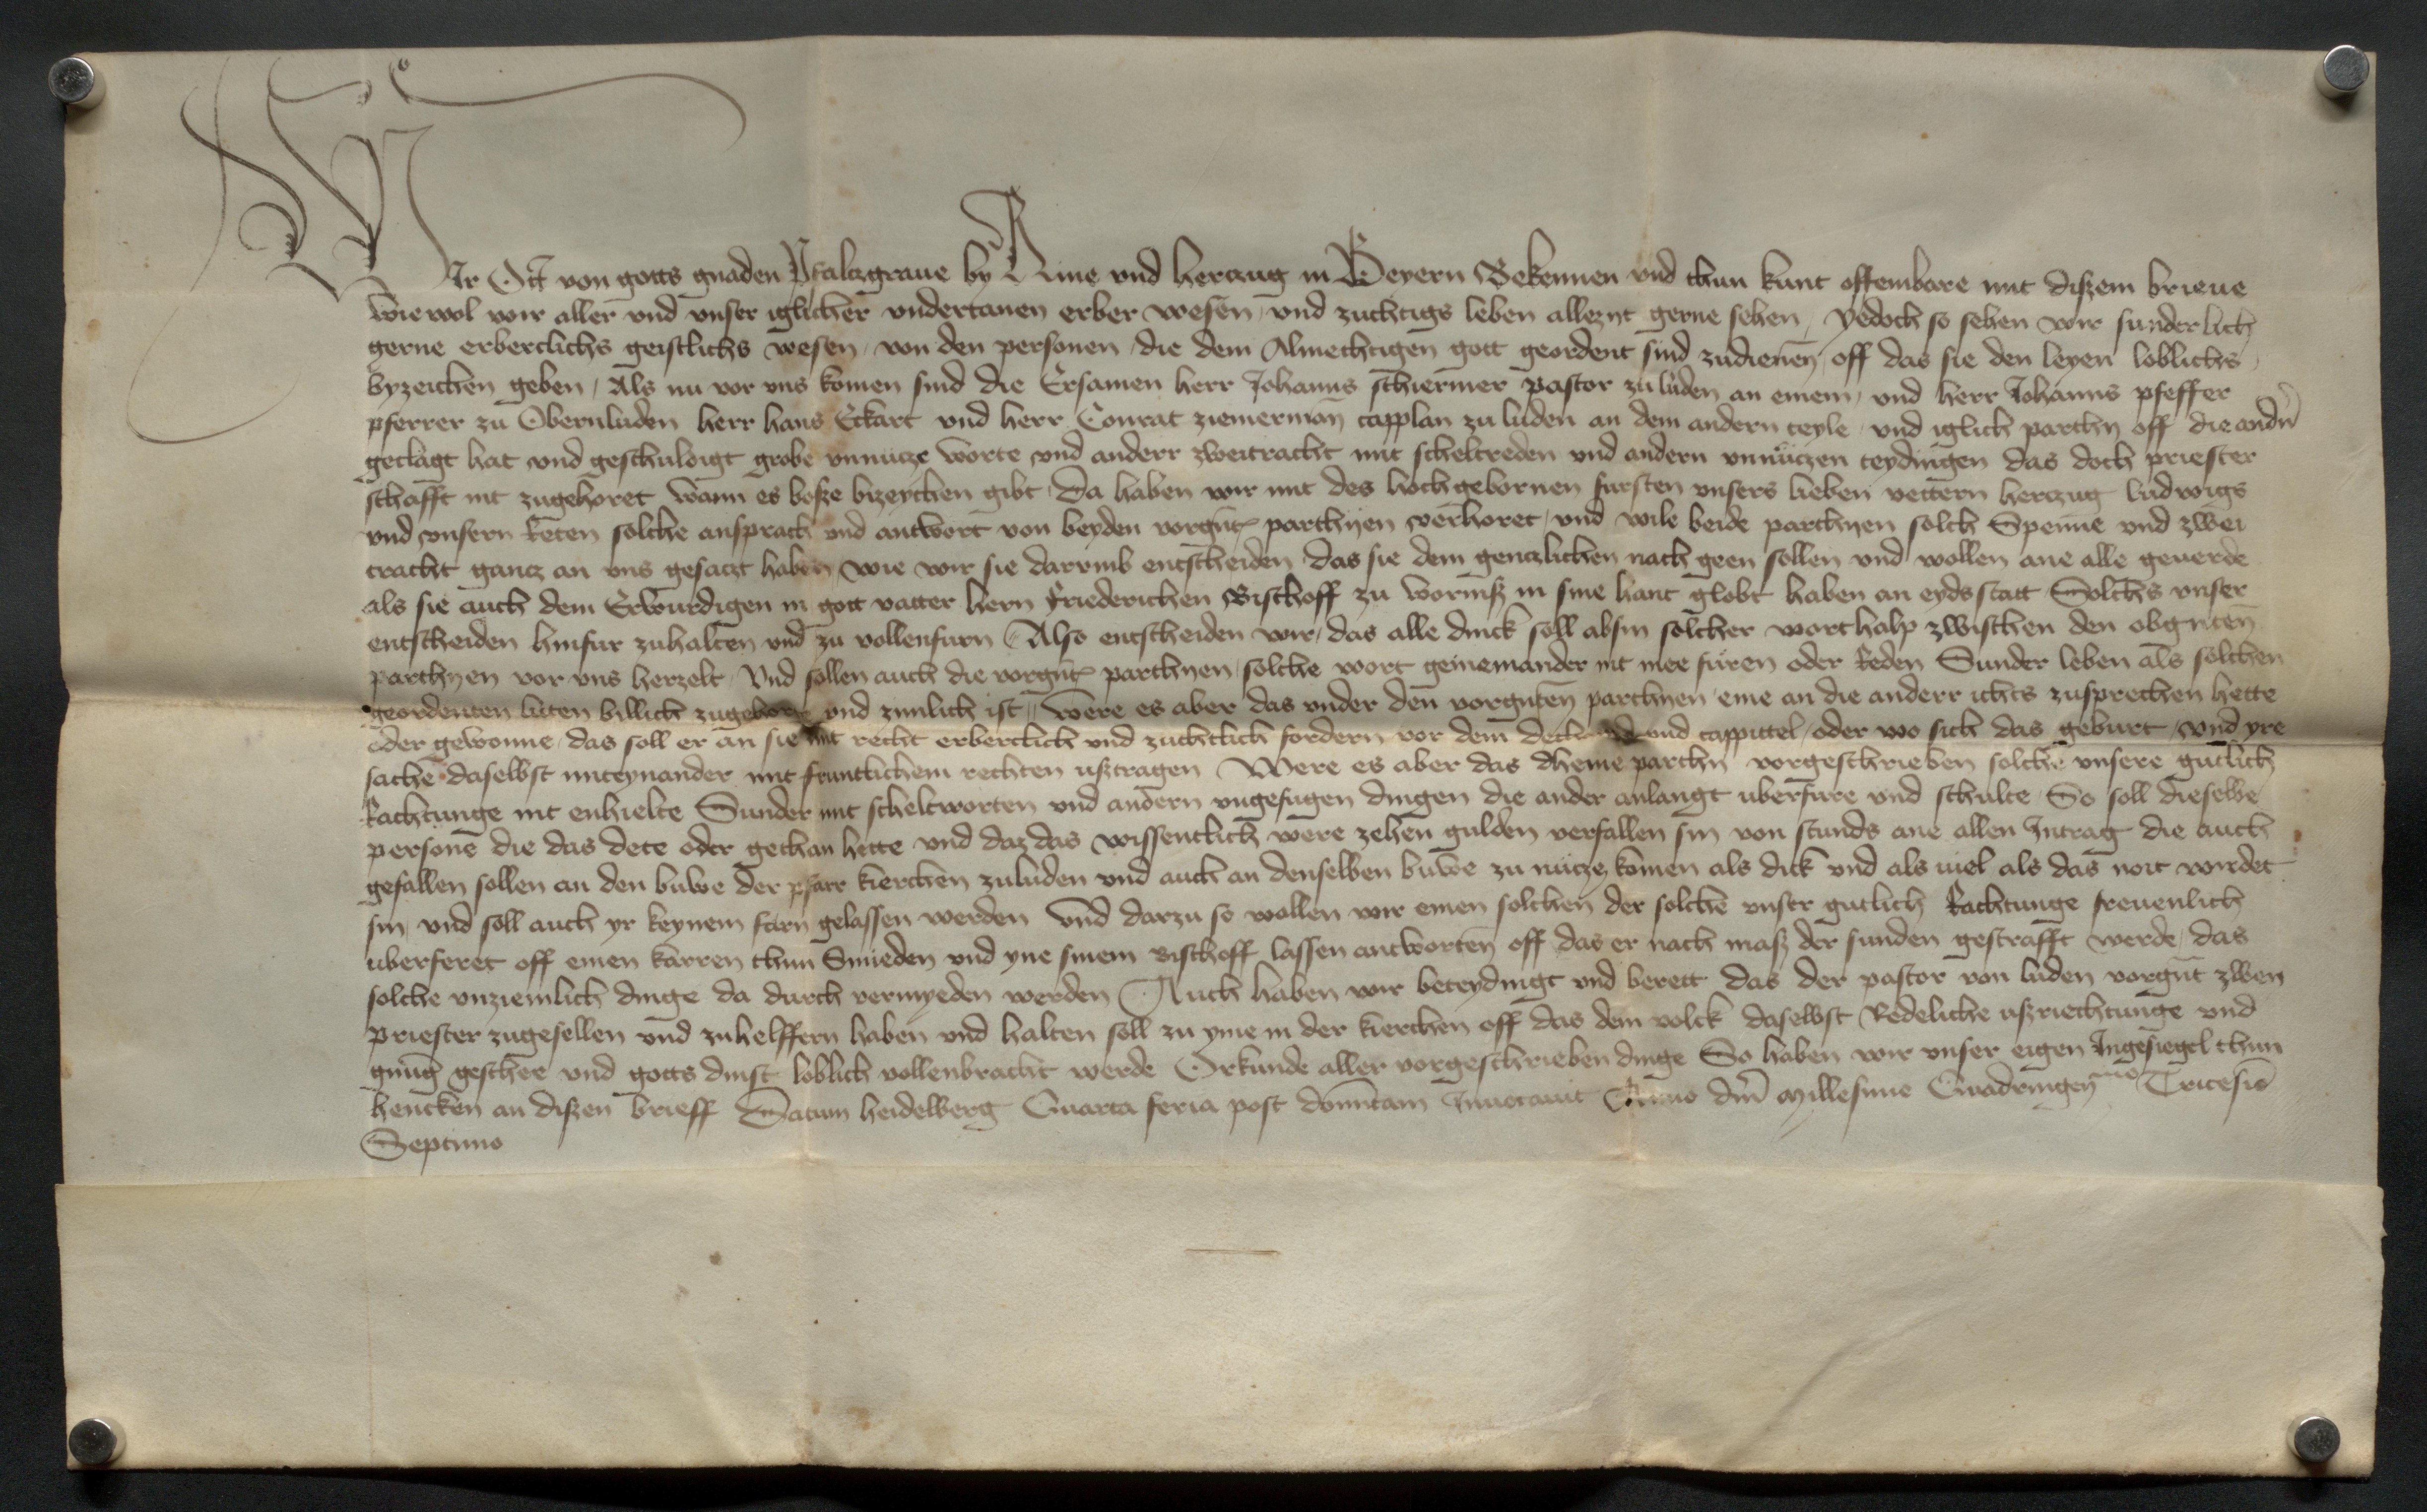 Wir Ott von gotts gnaden Pfaltzgraue by Rine vnd hertzug in Beyern Bekennen vnd thun kunt offembare mit diszem brieue
wiewol wir aller vnd vnser iglicher vndertanen erber wesen vnd zuchtigs leben allezyt gerne sehen / yedoch so sehen wir sunderlich
gerne erberclichs geistlichs wesen / von den personen / die dem Almechtigen gott geordent sind zudienen / off das sie den leyen loblichs
byzeichen geben / Als nu vor vns komen sind die Ersamen herr Johanns schiermer pastor zu luden an einem / vnd herr Johanns pfeffer
pferrer zu Obernluden herr hans Eckart vnd herr Conrat ziemerman capplan zu luden an dem andern teyle / vnd iglich parthy off die andn
geclagt hat vnd geschuldigt grobe vnnutze worte vnd anderr zweitracht mit scheltreden vnd andern vnnutzen teydingen das doch priester
schafft nit zugehoret wann es bosze bizeychen gibt / Da haben wir mit des hochgebornen fursten vnsers lieben vettern hertzug ludwigs
vnd vnsern Reten solche ansprach vnd antwort von beyden vorgnt parthyen verhoret / vnd wile beide parthyen solch Spenne vnd zwei
tracht gantz an vns gesatzt haben / wie wir sie darumb entscheiden / das sie dem gentzlichen nach geen sollen vnd wollen ane alle geuerde
als sie auch dem Erwurdigen in gott vatter hern Friederichen Bischoff zu wormsz in sine hant globt haben an eydsstatt Solchs vnser
entscheiden hinfur zuhalten vnd zu vollenfurn / Also entscheiden wir / das alle dinck soll absin solcher wort halp zwischen den obgnten
parthyen vor vns herzelt / Vnd sollen auch die vorgnt parthyen / solche wort geineinander nit mee furen oder Reden Sunder leben als solchen
geordenten luten billich zugehort vnd zimlich ist / Were es aber das vnder den vorgnten parthyen / eine an die anderr ichts zusprechen hette
oder gewonne / das soll er an sie mit recht erberclich vnd zuchtlich fordern vor dem vnd cappittel / oder wo sich das geburt / vnd yre
sache daselbst miteynander mit fruntlichem rechten usztragen Were es aber das dheine parthy vorgeschrieben solche vnsere gutlich
Rachtunge nit enhielte Sunder mit scheltworten vnd andern vngefugen dingen die ander anlangt uberfure vnd schulte / So soll dieselbe
persone die das dete oder gethan hette vnd daz das wissentlich were zehen gulden verfallen sin von stunds ane allen Intrag die auch
gefallen sollen an den buwe der pfarr kierchen zuluden vnd auch an denselben buwe zu nutze komen als dick vnd als uiel als das noit wurdet
sin / vnd soll auch yr keynem farn gelassen werden Vnd darzu so wollen wir einen solchen der solche vnser gutlich Rachtunge freuenlich
uberferet off einen karren thun Smieden vnd yne sinem Bischoff lassen antworten off das er nach masz der sunden gestrafft werde / das
solche vnziemlich dinge da durch vermyeden werden Auch haben wir beteydingt vnd berett das der pastor von luden vorgnt zwen
priester zugesellen vnd zuhelffern haben vnd halten soll zu yme in der kierchen off das dem volck daselbst Redeliche uszriechtunge vnd
gnug geschee vnd gotts dinst loblich vollenbracht werde Orkunde aller vorgeschrieben dinge So haben wir vnser eigen Ingesiegel thun
hencken an diszen brieff Datum heidelberg Quarta feria post domicam Inuocauit Anno dni Millesimo Quadringenmo Tricesio
Septimo